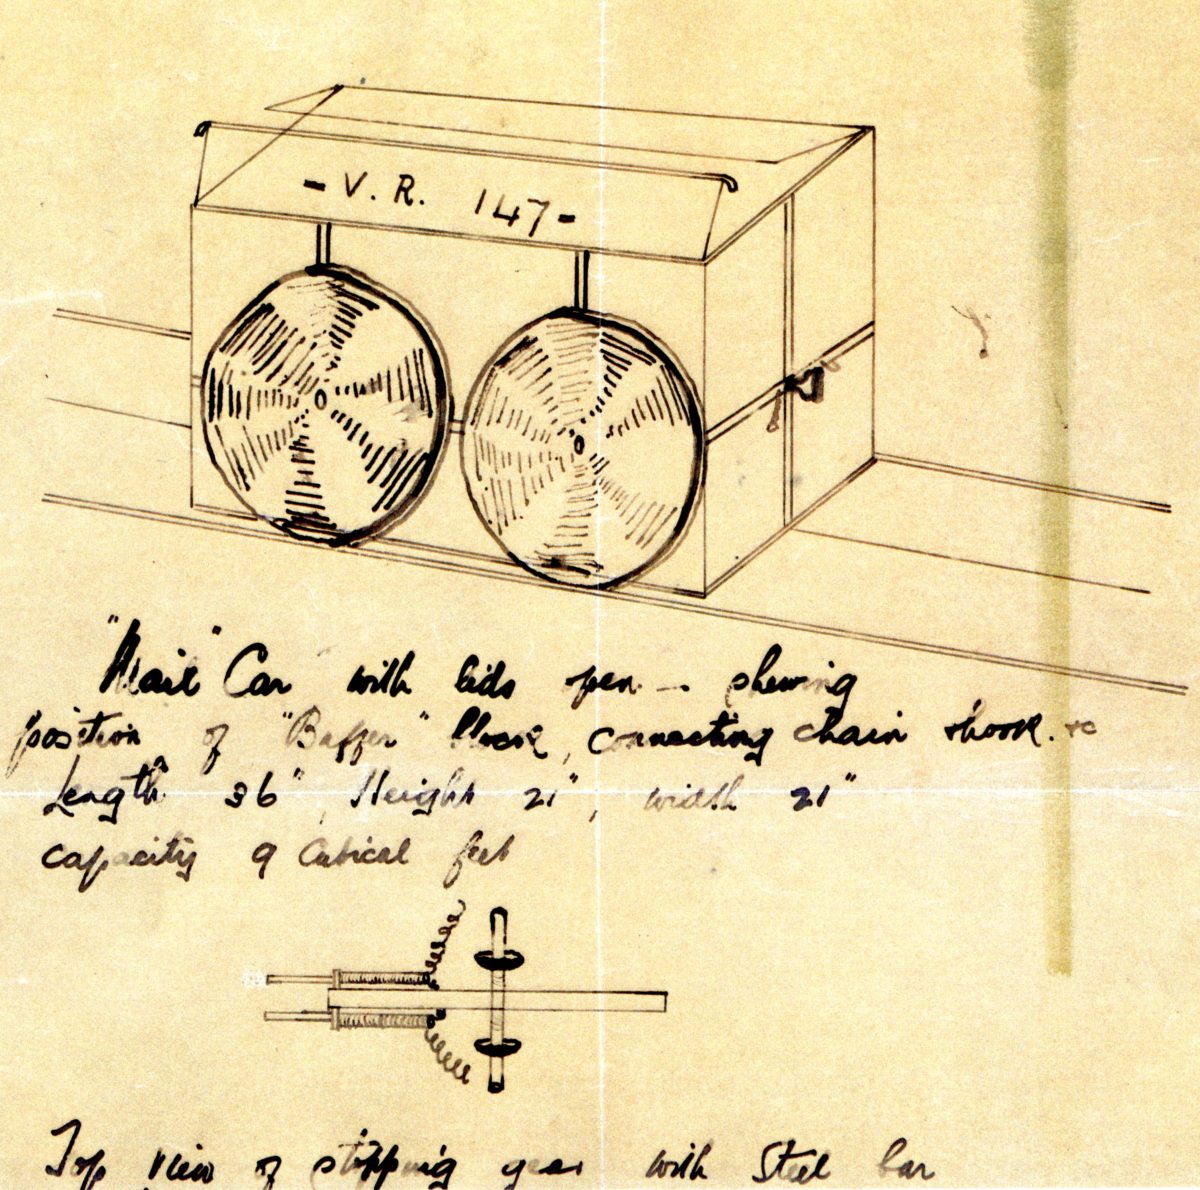 - V. R. 147 -
"Mail" Car with lids open - shewing
position of "Buffer" block, connecting chain & hook. &c
Length 36", Height 21", width 21"
capacity 9 Cubical feet
Top view of stopping gear with Steel bar